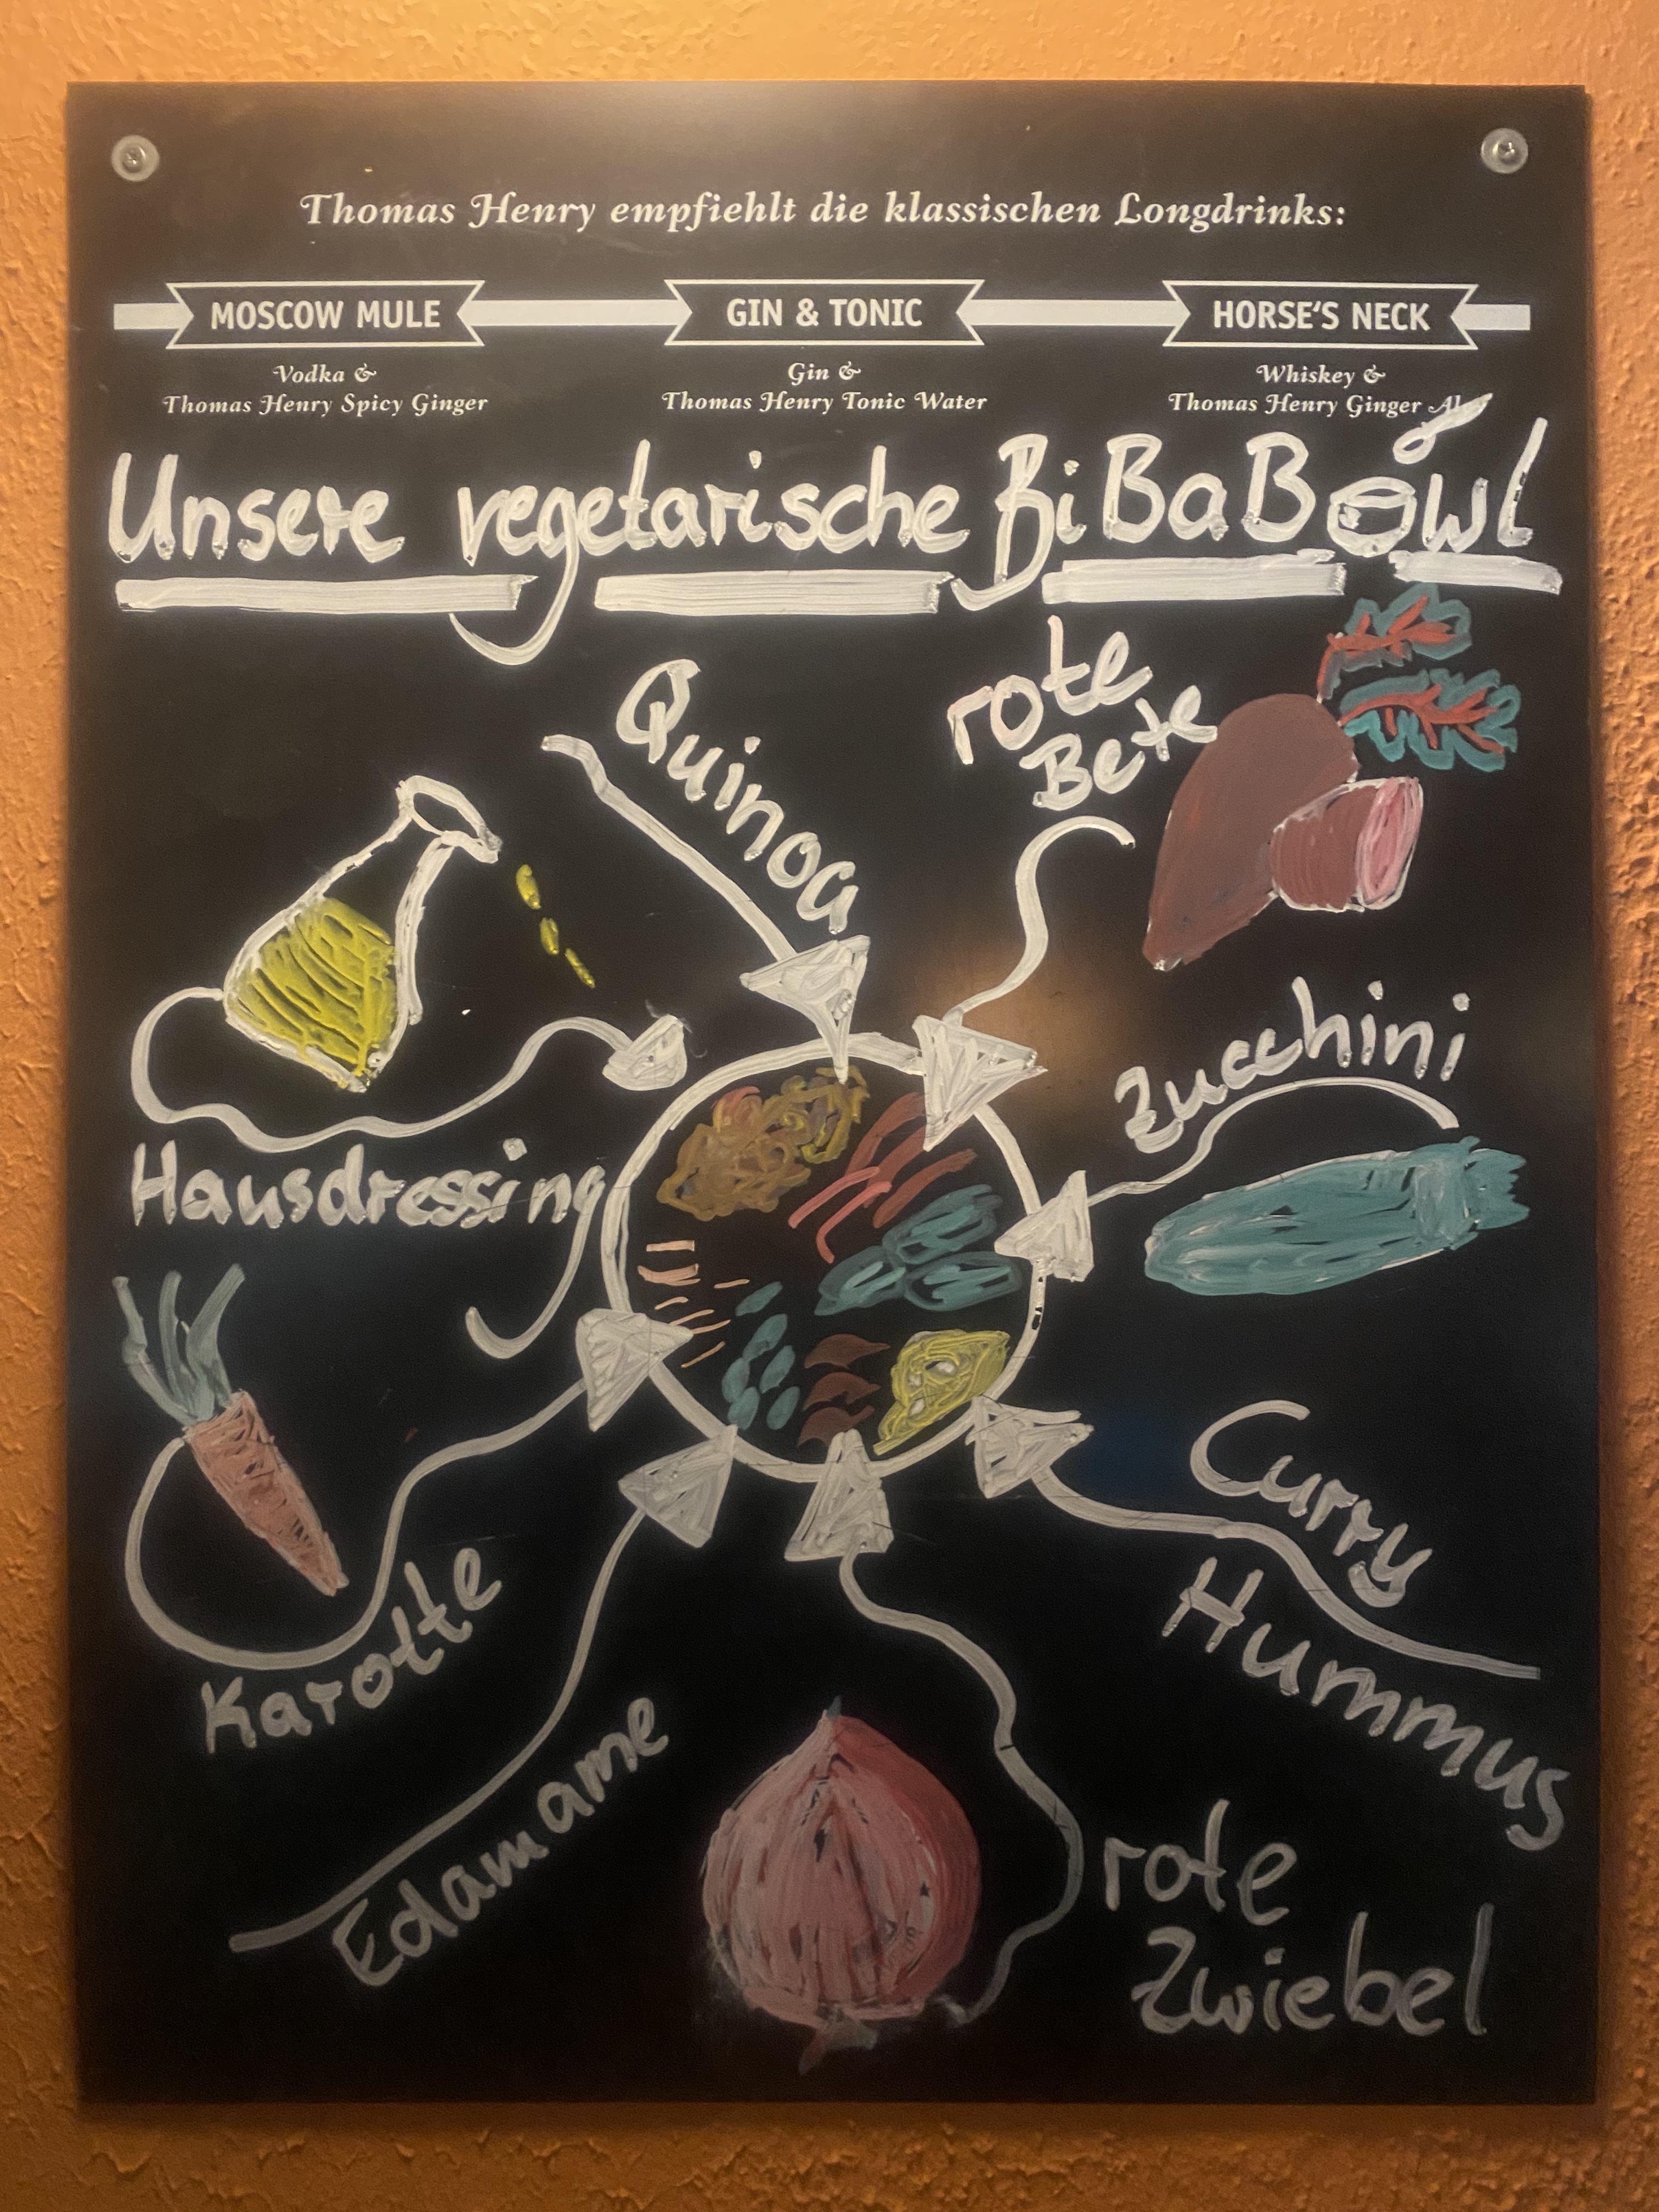 Thomas Henry empfiehlt die klassischen Longdrinks:
MOSCOW MULE
Vodka &
Thomas Henry Spicy Ginger
GIN & TONIC
Gin &
Thomas Henry Tonic Water
HORSE'S NECK
Whiskey &
Thomas Henry Ginger Ale
Unsere vegetarische BiBaBowl
Quinoa
rote
Bete
Zucchini
Hausdressing
Curry
Hummus
Karotte
Edamame
rote
Zwiebel